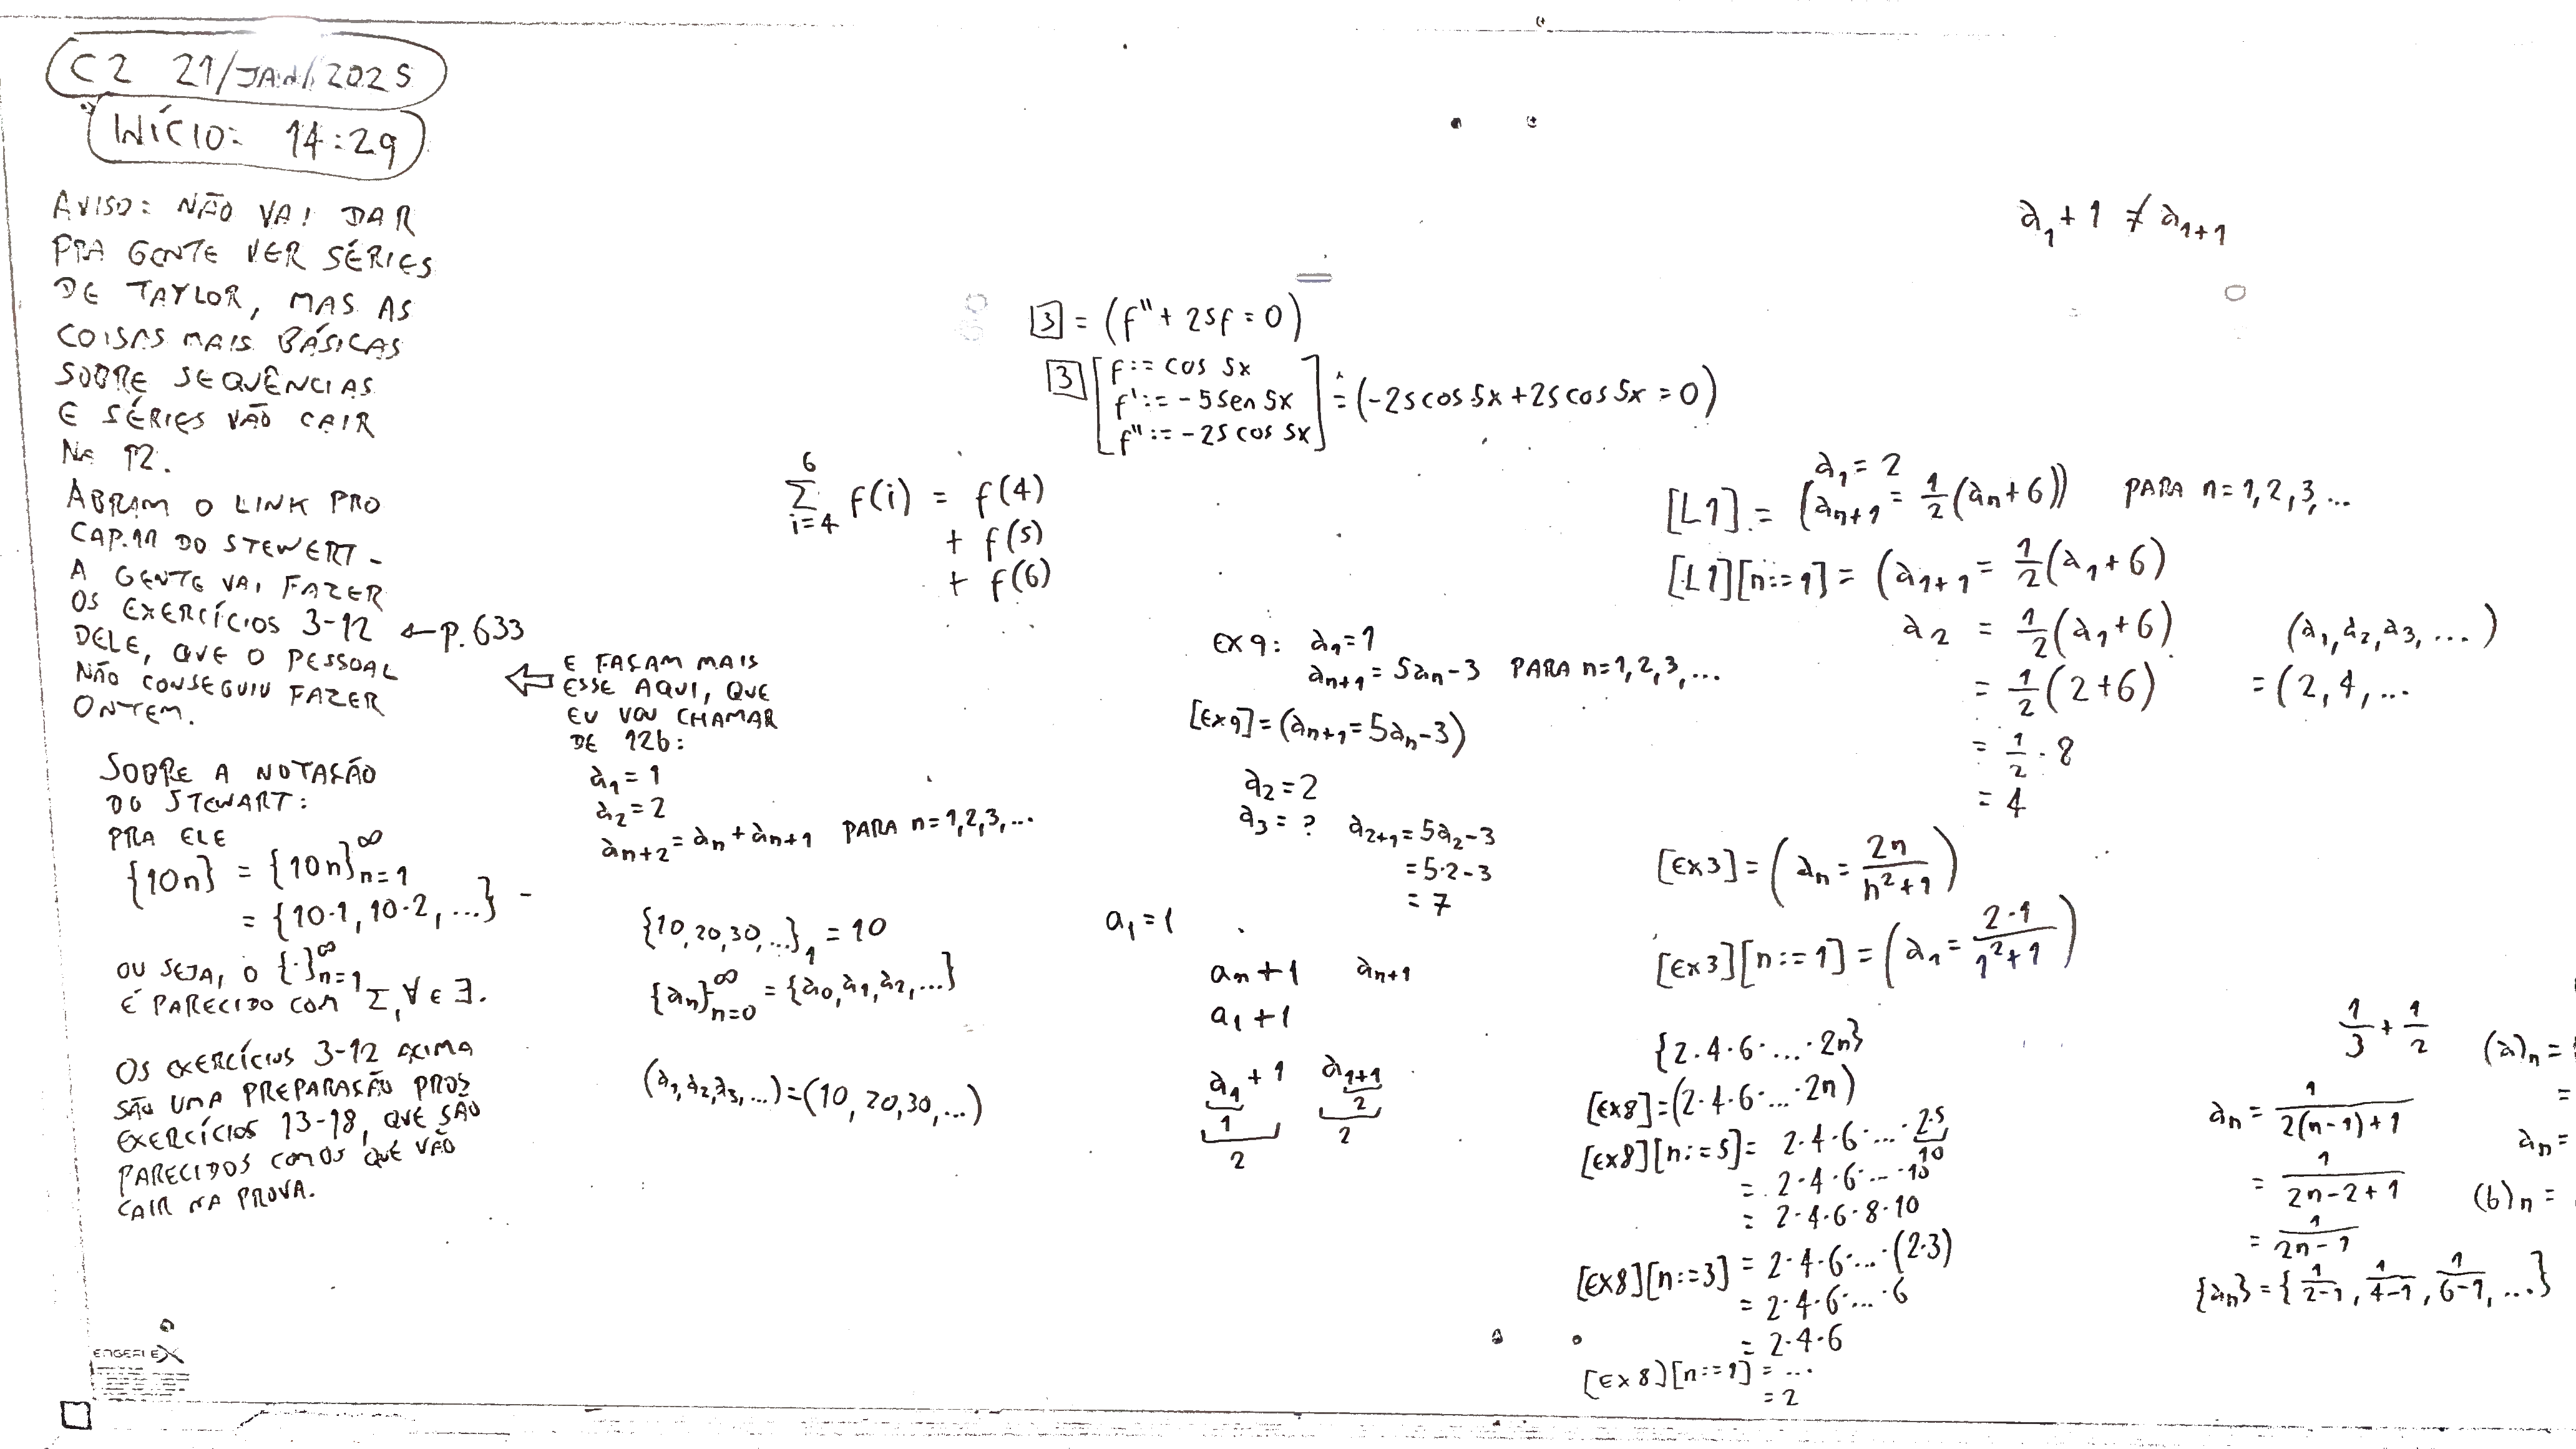 C2 21/JAN/2025
INÍCIO: 14:29
AVISO: NÃO VAI DAR
PRA GENTE VER SÉRIES
DE TAYLOR, MAS AS
COISAS MAIS BÁSICAS
SOBRE SEQUÊNCIAS
E SÉRIES VÃO CAIR
NA P2.
ABRAM O LINK PRO
CAP.11 DO STEWERT -
A GENTE VAI FAZER
OS EXERCÍCIOS 3-12 ← P. 633
DELE, QUE O PESSOAL
NÃO CONSEGUIU FAZER
ONTEM.
⇐ E FAÇAM MAIS
ESSE AQUI, QUE
EU VOU CHAMAR
DE 12b:
a₁ = 1
a₂ = 2
aₙ₊₂ = aₙ + aₙ₊₁ PARA n = 1,2,3,...
SOBRE A NOTAÇÃO
DO STEWART:
PRA ELE
{10n} = {10n}_{n=1}^∞
= {10·1, 10·2, ...} -
OU SEJA, O {·}_{n=1}^∞
É PARECIDO COM Σ, ∀ E ∃.
OS EXERCÍCIOS 3-12 ACIMA
SÃO UMA PREPARAÇÃO PROS
EXERCÍCIOS 13-18, QUE SÃO
PARECIDOS COM OS QUE VÃO
CAIR NA PROVA.
{10,20,30,...}₁ = 10
{aₙ}_{n=0}^∞ = {a₀,a₁,a₂,...}
(a₁,a₂,a₃,...) = (10,20,30,...)
Σ_{i=4}^{6} f(i) = f(4)
+ f(5)
+ f(6)
[3] = (f'' + 25f = 0)
[3] [f := cos 5x
f' := -5 sen 5x
f'' := -25 cos 5x] = (-25 cos 5x + 25 cos 5x = 0)
EX 9: a₁ = 1
aₙ₊₁ = 5aₙ - 3 PARA n = 1,2,3,...
[EX9] = (aₙ₊₁ = 5aₙ - 3)
a₂ = 2
a₃ = ? a₂₊₁ = 5a₂ - 3
= 5·2 - 3
= 7
a₁ = 1
aₙ + 1 aₙ₊₁
a₁ + 1
a₁ + 1 a₁₊₁
1 2
2 2
a₁ + 1 ≠ a₁₊₁
a₁ = 2
[L1] = (aₙ₊₁ = 1/2 (aₙ + 6)) PARA n = 1,2,3,...
[L1][n := 1] = (a₁₊₁ = 1/2 (a₁ + 6)
a₂ = 1/2 (a₁ + 6) (a₁, a₂, a₃, ...)
= 1/2 (2 + 6) = (2, 4, ...
= 1/2 · 8
= 4
[EX3] = (aₙ = 2n/(n² + 1))
[EX3][n := 1] = (a₁ = 2·1/(1² + 1))
{2·4·6·...·2n}
[EX8] = (2·4·6·...·2n)
[EX8][n := 5] = 2·4·6·...·2·5
10
= 2·4·6·...·10
= 2·4·6·8·10
[EX8][n := 3] = 2·4·6·...·(2·3)
= 2·4·6·...·6
= 2·4·6
[EX8][n := 1] = ...
= 2
1/3 + 1/2
aₙ = 1/(2(n-1)+1)
= 1/(2n-2+1)
= 1/(2n-1)
{aₙ} = {1/(2-1), 1/(4-1), 1/(6-1), ...}
(a)ₙ =
=
aₙ =
(b)ₙ =
ENGEFLEX